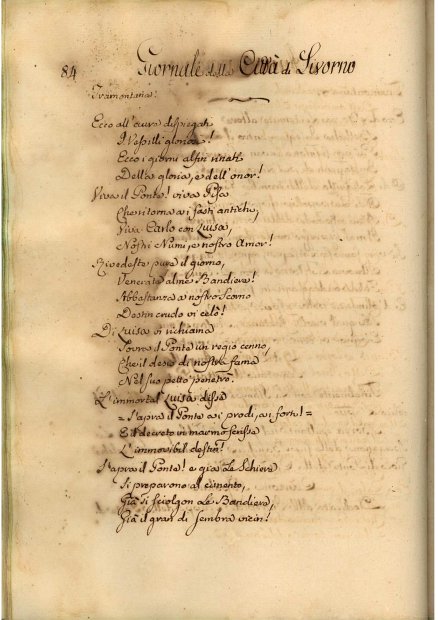 84
Giornale della Città di Livorno
Tramontana!
Ecco all'aure dispiegati
I Vessilli gloriosi!
Ecco i giorni alfin rinati
Della gloria, e dell'onor!
Viva il Ponte! viva Pisa
Che ritorna ai fasti antichi,
Viva Carlo con Luisa,
Nostri Numi, e nostro Amor!
Rivedeste pure il giorno,
Venerate alme Bandiere!
Abbastanza a nostro scorno
Destin crudo vi celò!
Di Luisa vi richiama
Sovra il Ponte un regio cenno,
Che il desio di nostra fama
Nel suo petto penetrò.
L'immortal Luisa disse
= S'apra il Ponte ai prodi, ai forti! =
E il decreto in marmo scrisse
L'immobil destin!
S'apra il Ponte! e già le Schiere
Si preparano al cimento,
Già si sciolgon le Bandiere,
Già il gran dì sembra vicin!